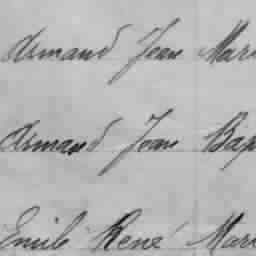 Armand Jean Mari
Armand Jean Bap
Emile René Mari